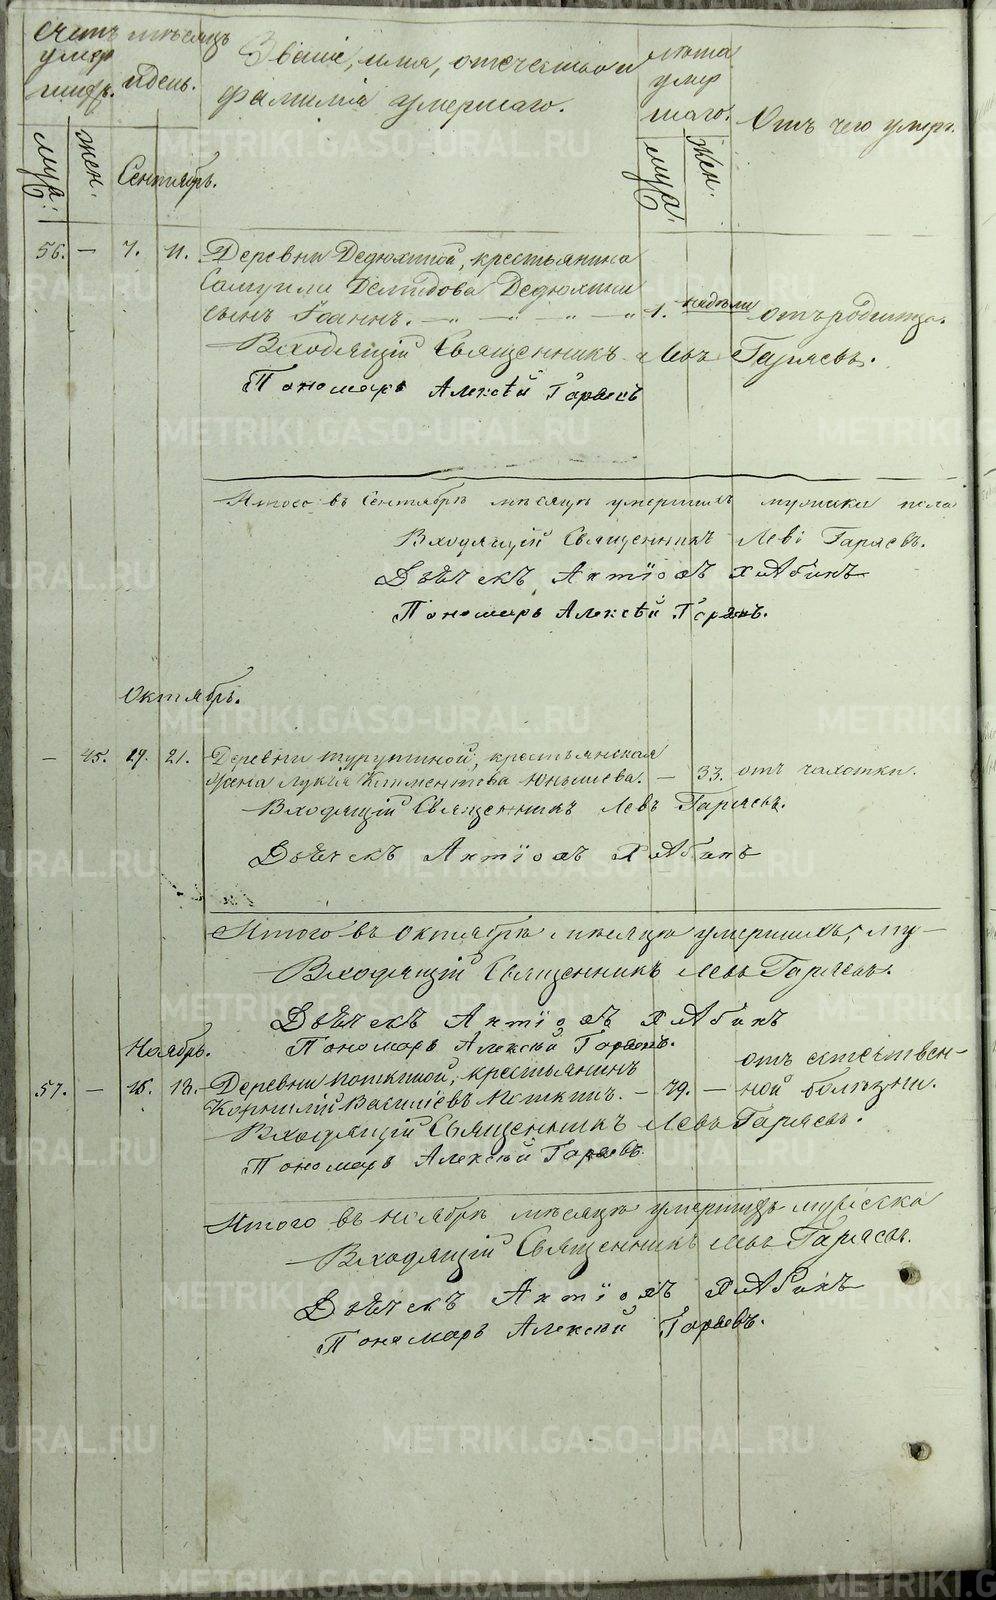 Счетъ мѣсяцъ Званіе, имя, отечество и лѣта
умер и день. фамилія умершаго. умер
шихъ. шаго. Отъ чего умеръ.
муж. жен. Сентябрь. муж. жен.
56. — 7. 11. Деревни Дедюхиной, крестьянина
Самуила Демидова Дедюхина
сынъ Іоаннъ. — „ — „ — „ — „ 1. недѣли отъ родимца.
Входящій Священникъ Левъ Гаряевъ.
Пономарь Алексѣй Гаряевъ
Итого въ Сентябрѣ мѣсяцѣ умершихъ мужска пола
Входящій Священникъ Левъ Гаряевъ.
Дьячекъ Антіохъ Хлабинъ
Пономарь Алексѣй Гаряевъ.
Октябрь.
— 45. 19. 21. Деревни крестьянская
жена Лукія Климентова Юнышева. — 33. отъ чахотки.
Входящій Священникъ Левъ Гаряевъ.
Дьячекъ Антіохъ Хлабинъ
Итого въ Октябрѣ мѣсяцѣ умершихъ, му—
Входящій Священникъ Левъ Гаряевъ.
Дьячекъ Антіохъ Хлабинъ
Ноябрь. Пономарь Алексѣй Гаряевъ.
отъ естествен-
57. — 18. Деревни Поткиной, крестьянинъ
Корнилій Василіевъ Поткинъ. — 79. — ной болѣзни.
Входящій Священникъ Левъ Гаряевъ.
Пономарь Алексѣй Гаряевъ.
Итого въ Ноябрѣ мѣсяцѣ умершихъ мужска
Входящій Священникъ Левъ Гаряевъ.
Дьячекъ Антіохъ Хлабинъ
Пономарь Алексѣй Гаряевъ.
METRIKI.GASO-URAL.RU